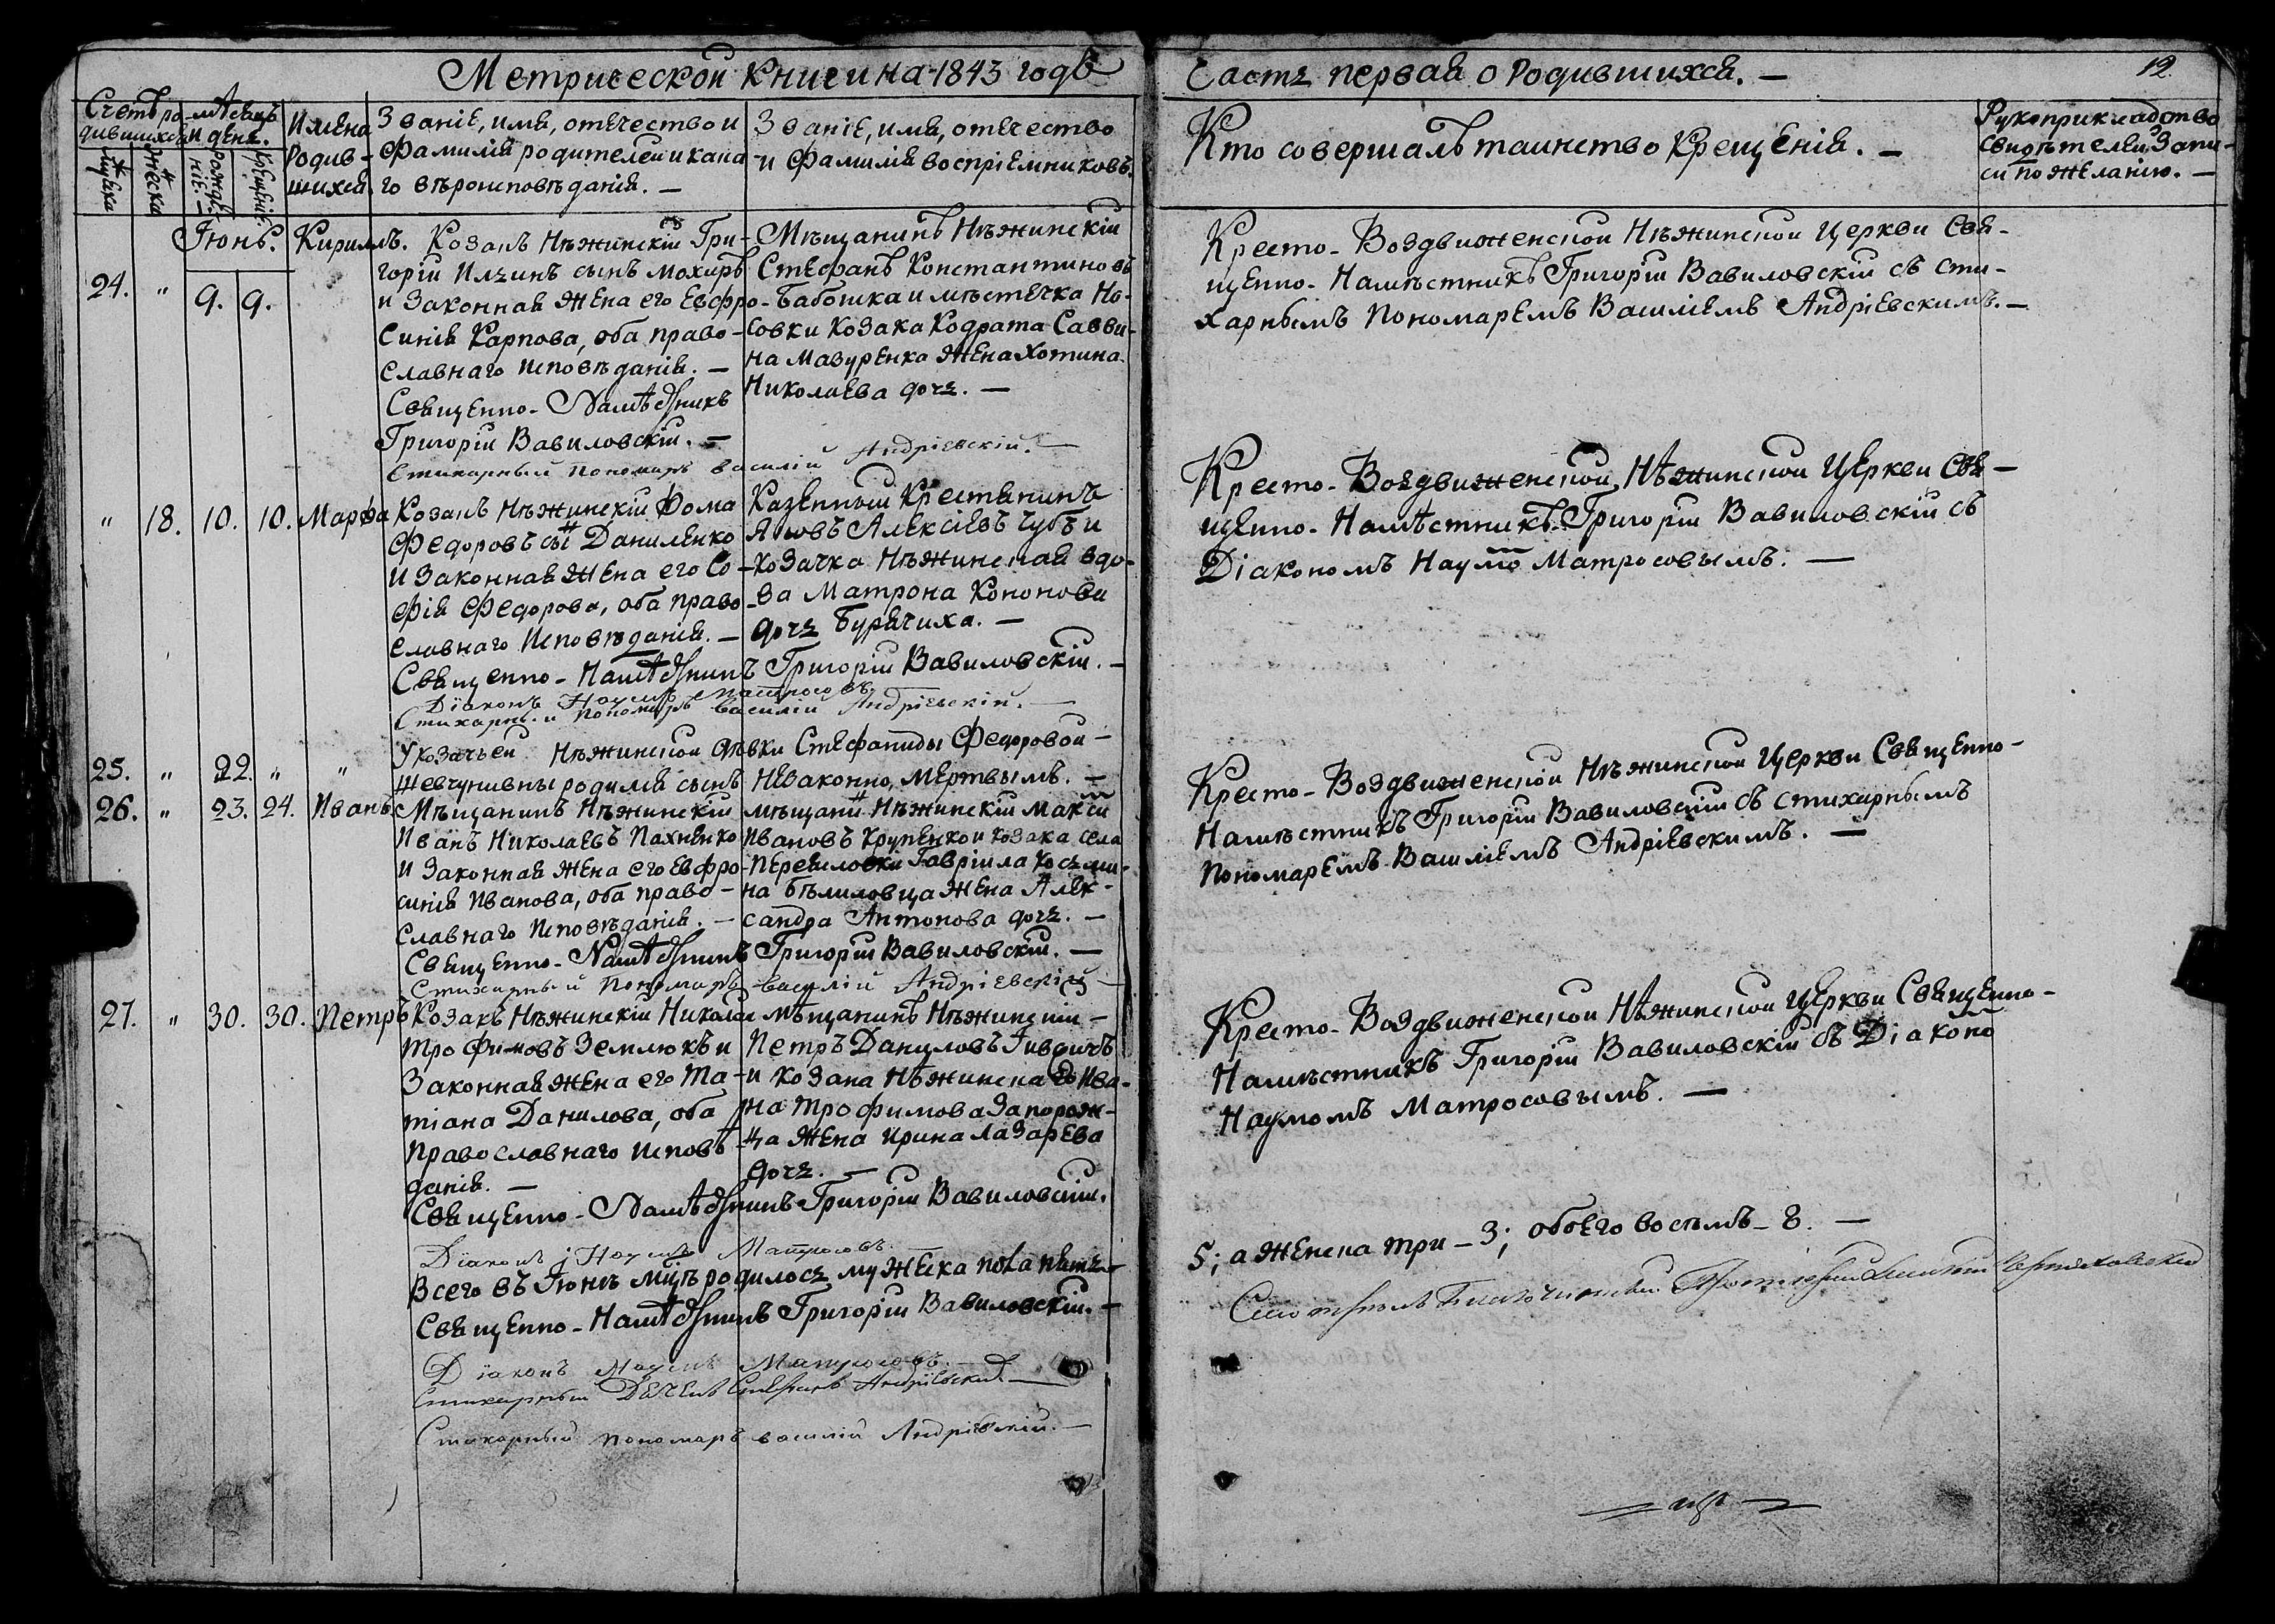 Метрической книги на 1843 годъ
Часть первая о Родившихся. —
12.
Счетъ родившихся
мѣсяцъ и день.
Мужеска
Женска
Рожденіе.
Крещеніе.
Имена Родившихся.
Званіе, имя, отечество и
Фамилія родителей и кака
го вѣроисповѣданія. —
Званіе, имя, отечество
и Фамилія воспріемниковъ.
Кто совершалъ таинство Крещенія. —
Рукоприкладство
свидѣтелей запи-
си по желанію. —
Іюнь.
24. " 9. 9.
Кириллъ.
Козакъ Нѣжинскій Гри-
горій Илъинъ сынъ Мохиръ
и Законная Жена его Евфро-
синія Карпова, оба право-
славнаго исповѣданія. —
Мѣщанинъ Нѣжинскій
Стефанъ Константиновъ
Бабошка и мѣстечка Но-
совки Козака Кодрата Савви-
на Мазуренка Жена Хотина
Николаева дочь. —
Священно-Намѣстникъ
Григорій Вавиловскій. —
Стихарный пономарь василій Андріевскій. —
Кресто-Воздвиженской Нѣжинской Церкви Свя-
щенно-Намѣстникъ Григорій Вавиловскій съ сти-
харнымъ Пономаремъ Василіемъ Андріевскимъ. —
" 18. 10. 10. Марфа
Козакъ Нѣжинскій Фома
Федоровъ сынъ Даниленко
и Законная Жена его Со-
фія Федорова, оба право-
славнаго Исповѣданія. —
Казенный Крестянинъ
Яковъ Алексіевъ Чубъ и
козачка Нѣжинская вдо-
ва Матрона Кононова
дочь Бурячиха. —
Священно-Намѣстникъ Григорій Вавиловскій. —
Діаконъ Наумъ Матросовъ.
Стихарный пономарь василій Андріевскій. —
Кресто-Воздвиженской Нѣжинской Церкви Свя-
щенно-Намѣстникъ Григорій Вавиловскій съ
Діакономъ Наумо Матросовымъ. —
25. " 22. " "
У козачьей Нѣжинской дѣвки Стефаниды Федоровой
Шевчунивны родился сынъ Незаконно, Мертвымъ. —
26. " 23. 24. Иванъ
Мѣщанинъ Нѣжинскій
Иванъ Николаевъ Пахненко
и Законная Жена его Евфро-
синія Иванова, оба право-
славнаго Исповѣданія. —
мѣщани Нѣжинскій Макси
Ивановъ Крупенко и козака села
Гавріила Косьми-
на Бѣлиловца Жена Алек-
сандра Антонова дочь. —
Священно-Намѣстникъ Григорій Вавиловскій. —
Стихарный Пономарь василій Андріевскій
Кресто-Воздвиженской Нѣжинской Церкви Священно-
Намѣстникъ Григорій Вавиловскій съ стихарнымъ
Пономаремъ Василіемъ Андріевскимъ. —
27. " 30. 30. Петръ
Козакъ Нѣжинскій Николай
Трофимовъ Землюкъ и
Законная Жена его Та-
тіана Данилова, оба
Православнаго исповѣ-
данія. —
мѣщанинъ Нѣжинскій
Петръ Даниловъ
и козака Нѣжинскаго Ива-
на Трофимова Запорож-
ца Жена Ирина Лазарева
дочь. —
Священно-Намѣстникъ Григорій Вавиловскій.
Діаконъ Наумъ Матросовъ.
Кресто-Воздвиженской Нѣжинской Церкви Священно-
Намѣстникъ Григорій Вавиловскій съ Діаконо
Наумомъ Матросовымъ. —
Всего въ Іюнѣ мцѣ родилось мужеска пола пять
5; а женска три — 3; обоего восемь — 8. —
Священно-Намѣстникъ Григорій Вавиловскій. —
Діаконъ Наумъ Матросовъ. —
Стихарный Дьячекъ Стефанъ Андріевскій. —
Стихарный пономарь василій Андріевскій. —
Смотрѣлъ Благочинный Протоіерей